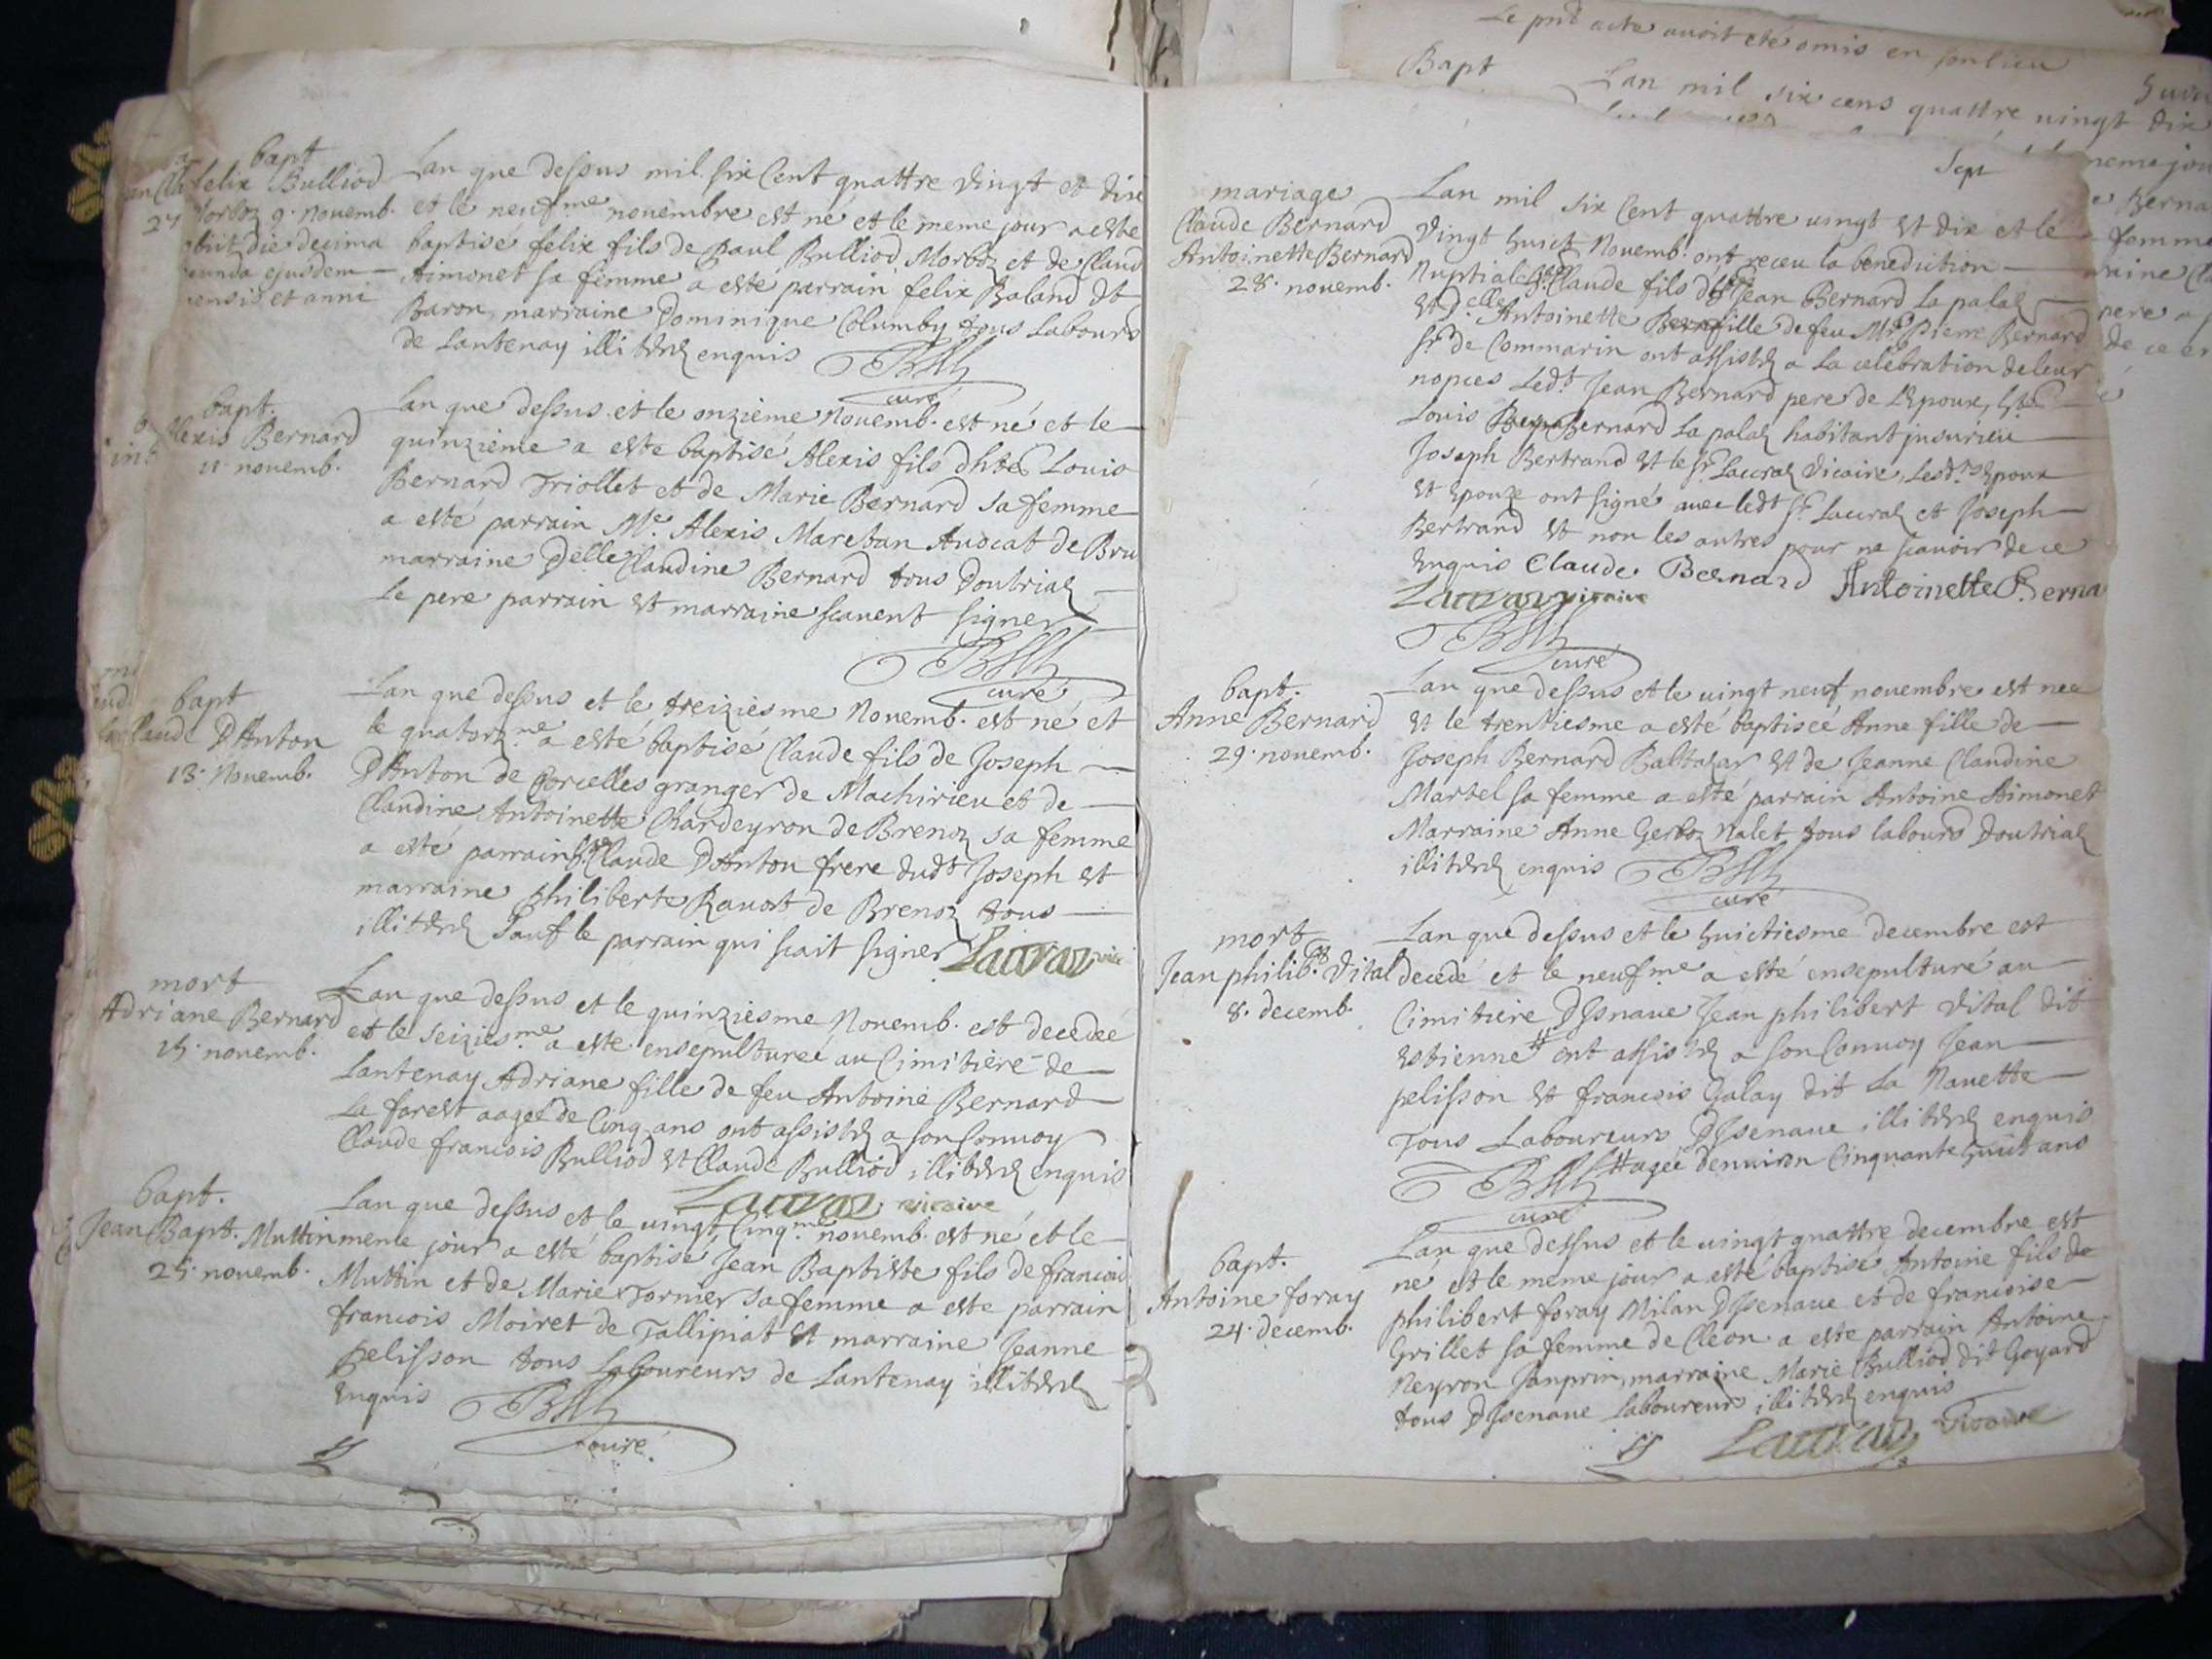 bapt
felix Bulliod
Morboz 9. Novemb.
obiit die decima
ejusdem
mensis et anni
Lan que dessus mil six Cent quattre vingt et dix
et le neufme novembre est né et le meme jour a esté
baptisé felix fils de Paul Bulliod Morboz et de Claud
Aimonet sa femme a esté parrain felix Baland dt
Baron, marraine Dominique Columby tous Labours
de Lantenay illiterez enquis
curé
bapt.
Alexis Bernard
11 novemb.
Lan que dessus et le onzieme Novemb. est né et le
quinzieme a este baptisé Alexis fils dhble Louis
Bernard Triollet et de Marie Bernard sa femme
a esté parrain Me. Alexis Maretan Avocat de Bru
marraine Delle Claudine Bernard tous Doutriaz
Le pere parrain et marraine scavent signer
curé
bapt
Claude DAnton
13. Novemb.
Lan que dessus et le treiziesme Novemb. est né et
le quatorzme a esté baptisé Claude fils de Joseph
DAnton de Corcelles granger de Machirieu et de
Claudine Antoinette Chardeyron de Brenoz sa femme
a esté parrain Claude DAnton frere dudt Joseph et
marraine philiberte Ravot de Brenoz tous
illiterez Sauf le parrain qui scait signer Lauraz
mort
Adriane Bernard
15. novemb.
Lan que dessus et le quinziesme Novemb. est decedée
et le seiziesme a este ensepulturée au Cimitiere de
Lantenay Adriane fille de feu Antoine Bernard
La forest aagée de Cinq ans ont assistez a son Convoy
Claude francois Bulliod et Claude Bulliod illiterez enquis
Lauraz vicaire
bapt.
Jean Bapt. Muttin
25. novemb.
Lan que dessus et le vingt Cinqme novemb. est né et le
meme jour a esté baptisé Jean Baptiste fils de francois
Muttin et de Marie Tornier sa femme a este parrain
francois Moiret de Tallipiat et marraine Jeanne
pelisson tous Laboureurs de Lantenay illiterez
enquis
curé
Le pnt acte avoit eté omis en son lieu
Bapt
Lan mil six cens quattre vingt dix
meme jour
Berna
femme
Sept
mariage
Claude Bernard
Antoinette Bernard
28. novemb.
Lan mil six Cent quattre vingt et dix et le
Vingt huict Novemb. ont receu la benediction
Nuptiale Claude fils Jean Bernard La palaz
et Delle Antoinette fille de feu Mre Pierre Bernard
Sr. de Commarin ont assistez a La celebration de leur
nopces Ledt Jean Bernard pere de Lepoux,
Louis Bernard La palaz habitant jusurieu
Joseph Bertrand et le Sr. Lauraz Vicaire, Lesdts Epoux
et Epouze ont signé avec ledt Sr. Lauraz et Joseph
Bertrand et non les autres pour ne scavoir de ce
Enquis Claude Bernard Antoinette Berna
Lauraz vicaire
curé
bapt.
Anne Bernard
29. novemb.
Lan que dessus et le vingt neuf novembre est nee
et le trentiesme a esté baptisée Anne fille de
Joseph Bernard Baltazar et de Jeanne Claudine
Martel sa femme a esté parrain Antoine Aimonet
Marraine Anne Gerboz Nalet tous labours Doutriaz
illiterez enquis
curé
mort
Jean philibt. Vital
8. decemb.
Lan que dessus et le huictiesme decembre est
decedé et le neufme a esté ensepulturé au
Cimitiere DIsnave Jean philibert Vital dit
Estienne # ont assistez a son Convoy Jean
pelisson et francois Galay dit La Navette
Tous Laboureurs DIsenave illiterez enquis
# agée denviron Cinquante huit ans
curé
bapt.
Antoine foray
24. decemb.
Lan que dessus et le vingt quattre decembre est
né et le meme jour a esté baptisé Antoine fils de
philibert foray Milan DIsenave et de francoise
Grillet sa femme de Cleon a este parrain Antoine
Neyron Janprin, marraine Marie Bulliod dit Goyard
tous DIsenave Laboureurs illiterez enquis
Lauraz Vicaire